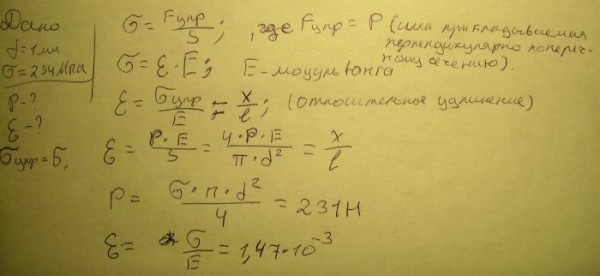 Дано
d = 1мм
σ = 294МПа
P - ?
ε - ?
σупр = σ.
σ = Fупр / S; , где Fупр = P (сила прикладываемая
перпендикулярно попереч-
ному сечению).
σ = ε · E; E - модуль Юнга
ε = σупр / E = x / l; (относительное удлинение)
ε = P · E / S = 4 · P · E / π · d² = x / l
P = σ · π · d² / 4 = 231 Н
ε = σ / E = 1,47 · 10⁻³